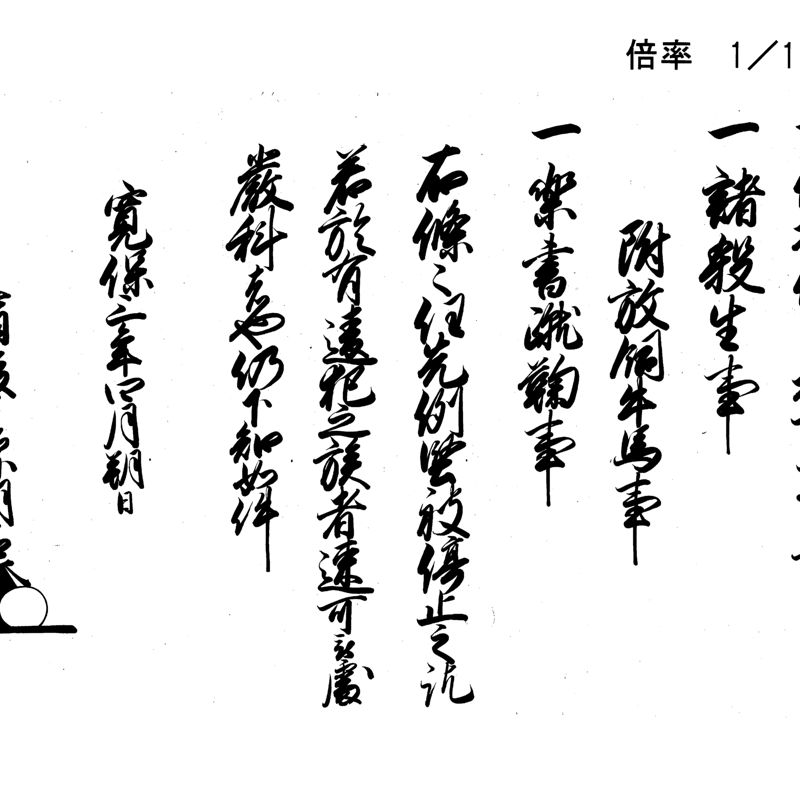 倍率 1/1
一 諸殺生事
附放飼牛馬事
一 楽書蹴鞠事
右條々任先例堅被停止之訖
若於有違犯之族者速可被處
嚴科者也仍下知如件
寛保三年四月朔日